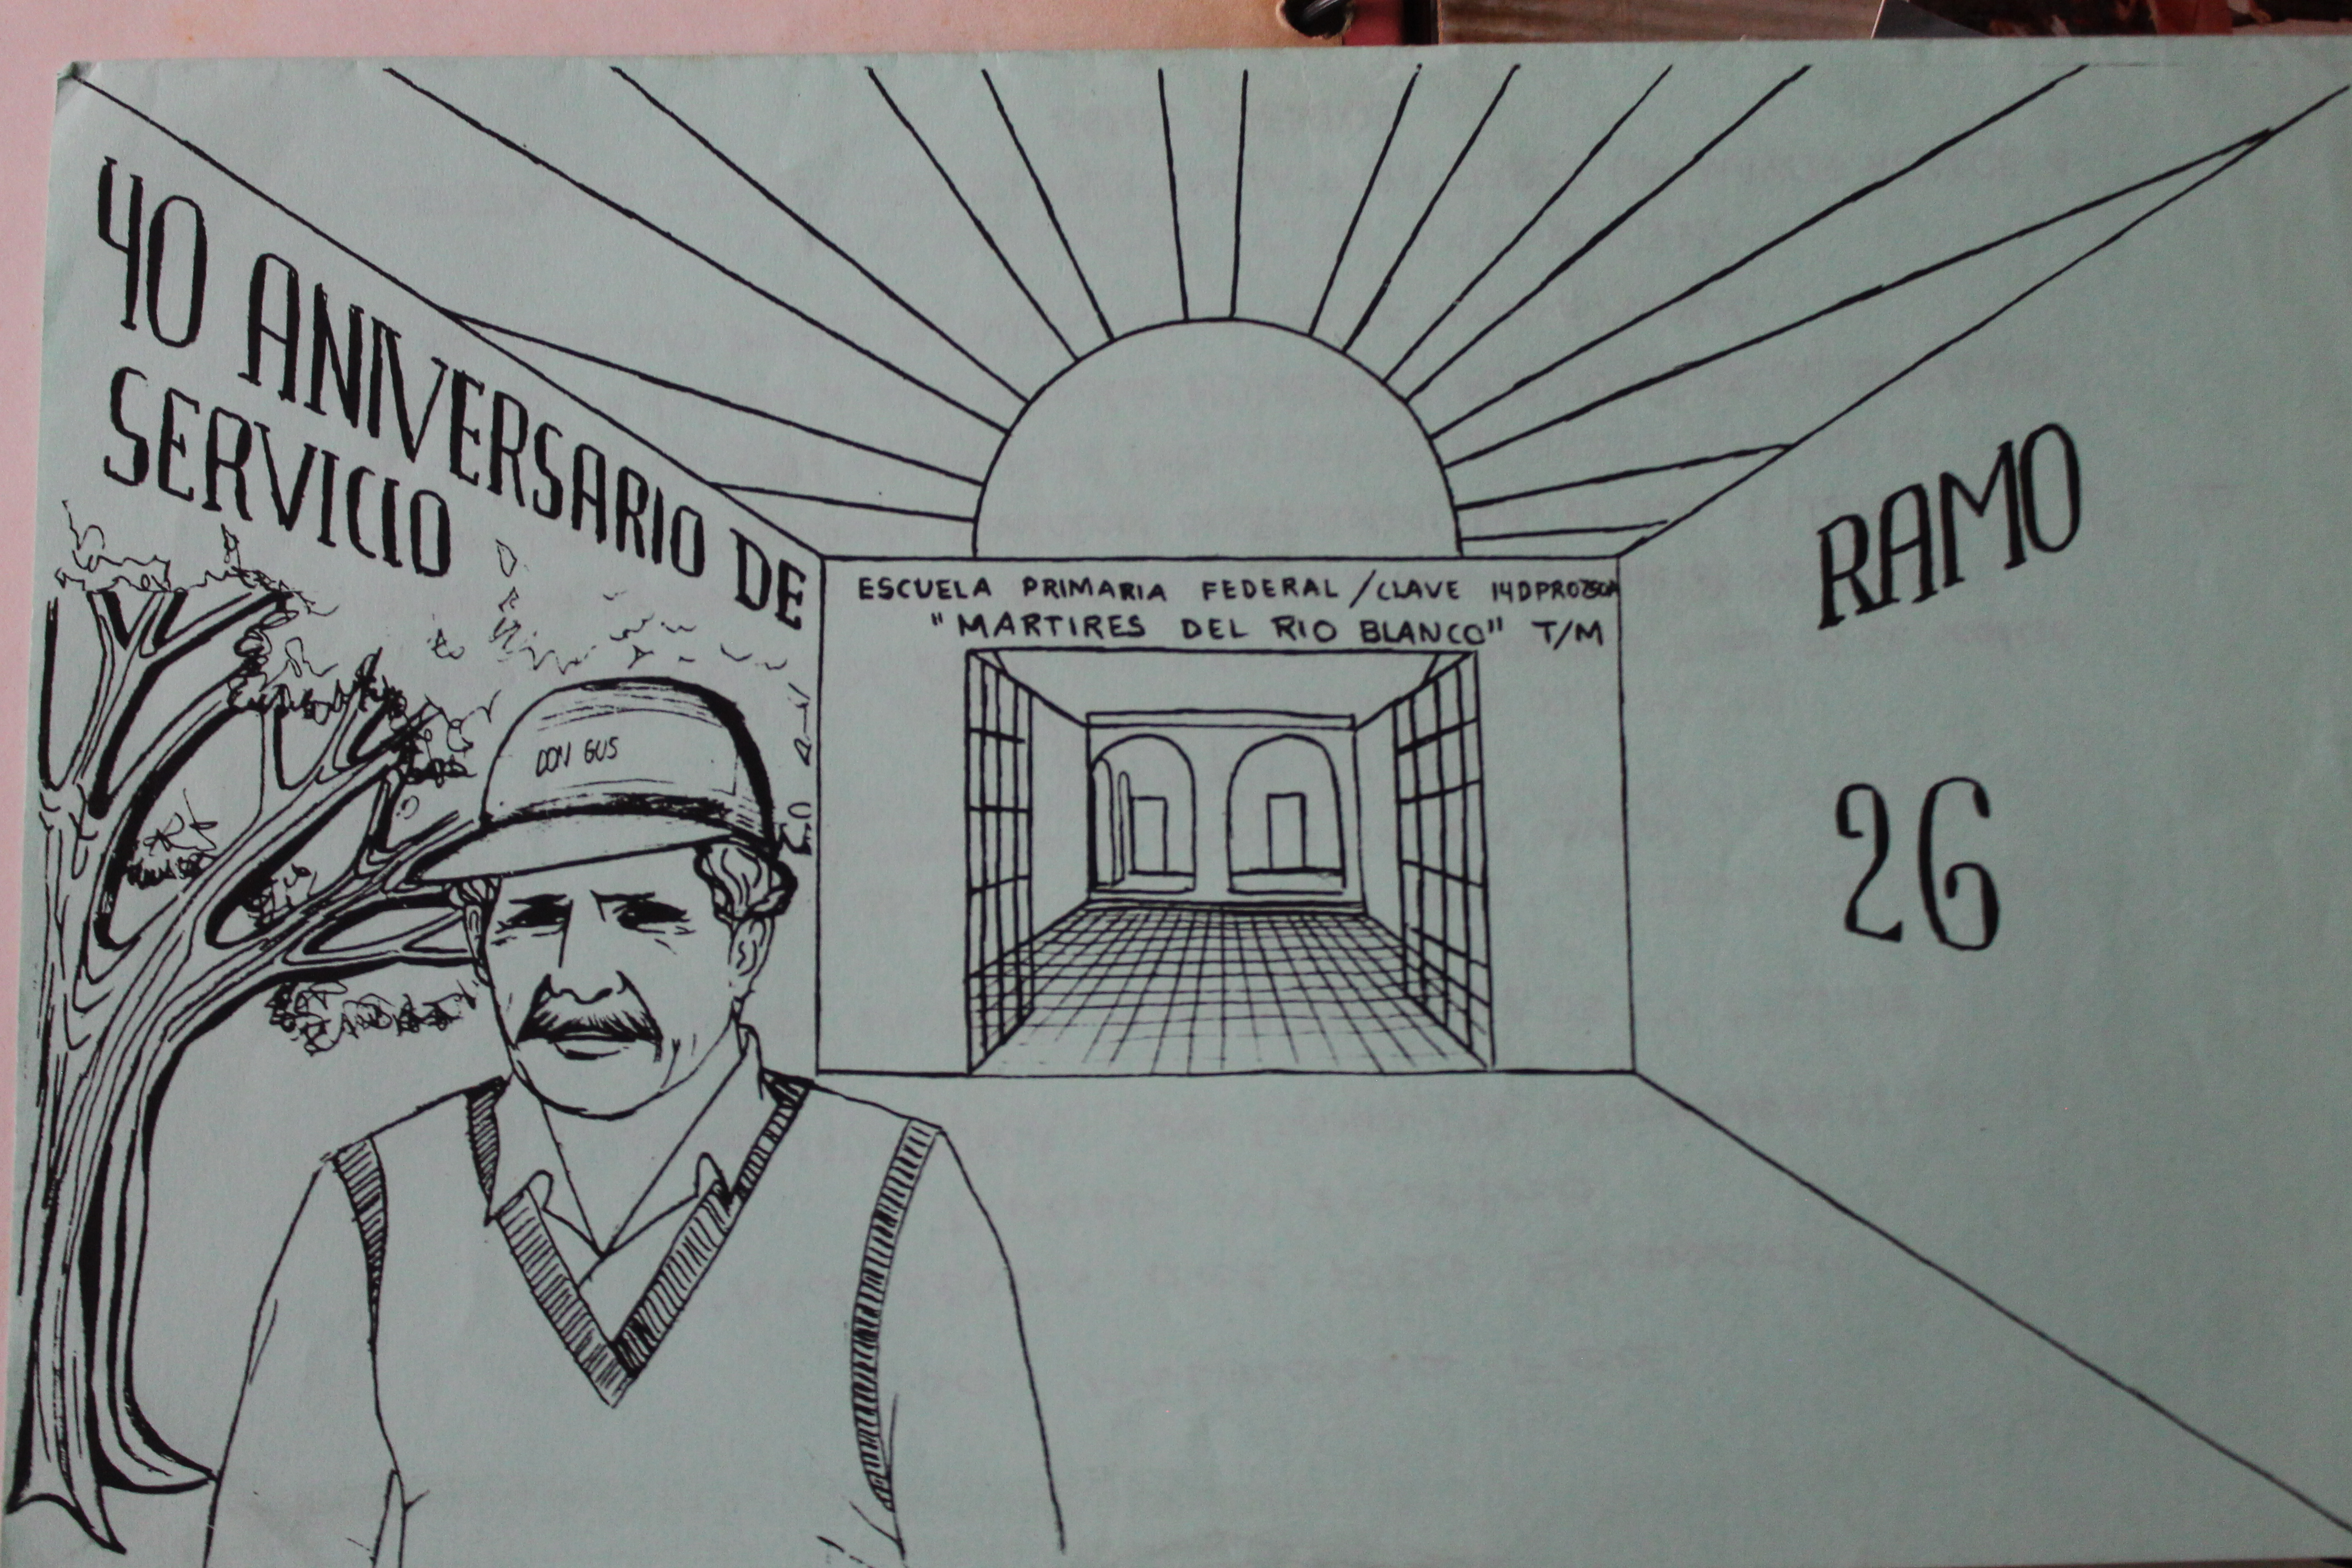 40 ANIVERSARIO DE
SERVICIO
ESCUELA PRIMARIA FEDERAL / CLAVE
"MARTIRES DEL RIO BLANCO" T/M
DON GUS
RAMO
26